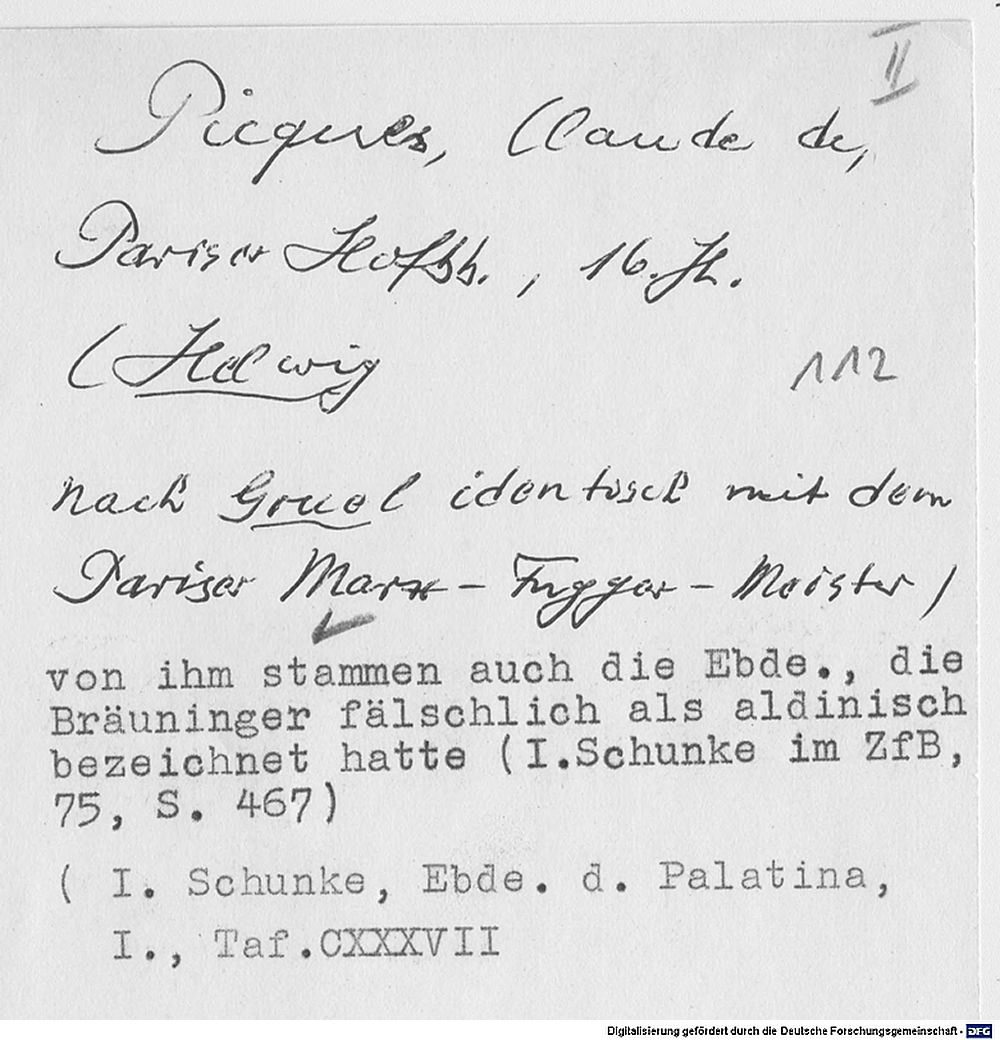 II
Picques, Claude de,
Pariser Hofbb., 16. Jh.
(Helwig 112
nach Gruel identisch mit dem
Pariser Marx-Fugger-Meister)
von ihm stammen auch die Ebde., die
Bräuninger fälschlich als aldinisch
bezeichnet hatte (I.Schunke im ZfB,
75, S. 467)
( I. Schunke, Ebde. d. Palatina,
I., Taf.CXXXVII
Digitalisierung gefördert durch die Deutsche Forschungsgemeinschaft - DFG